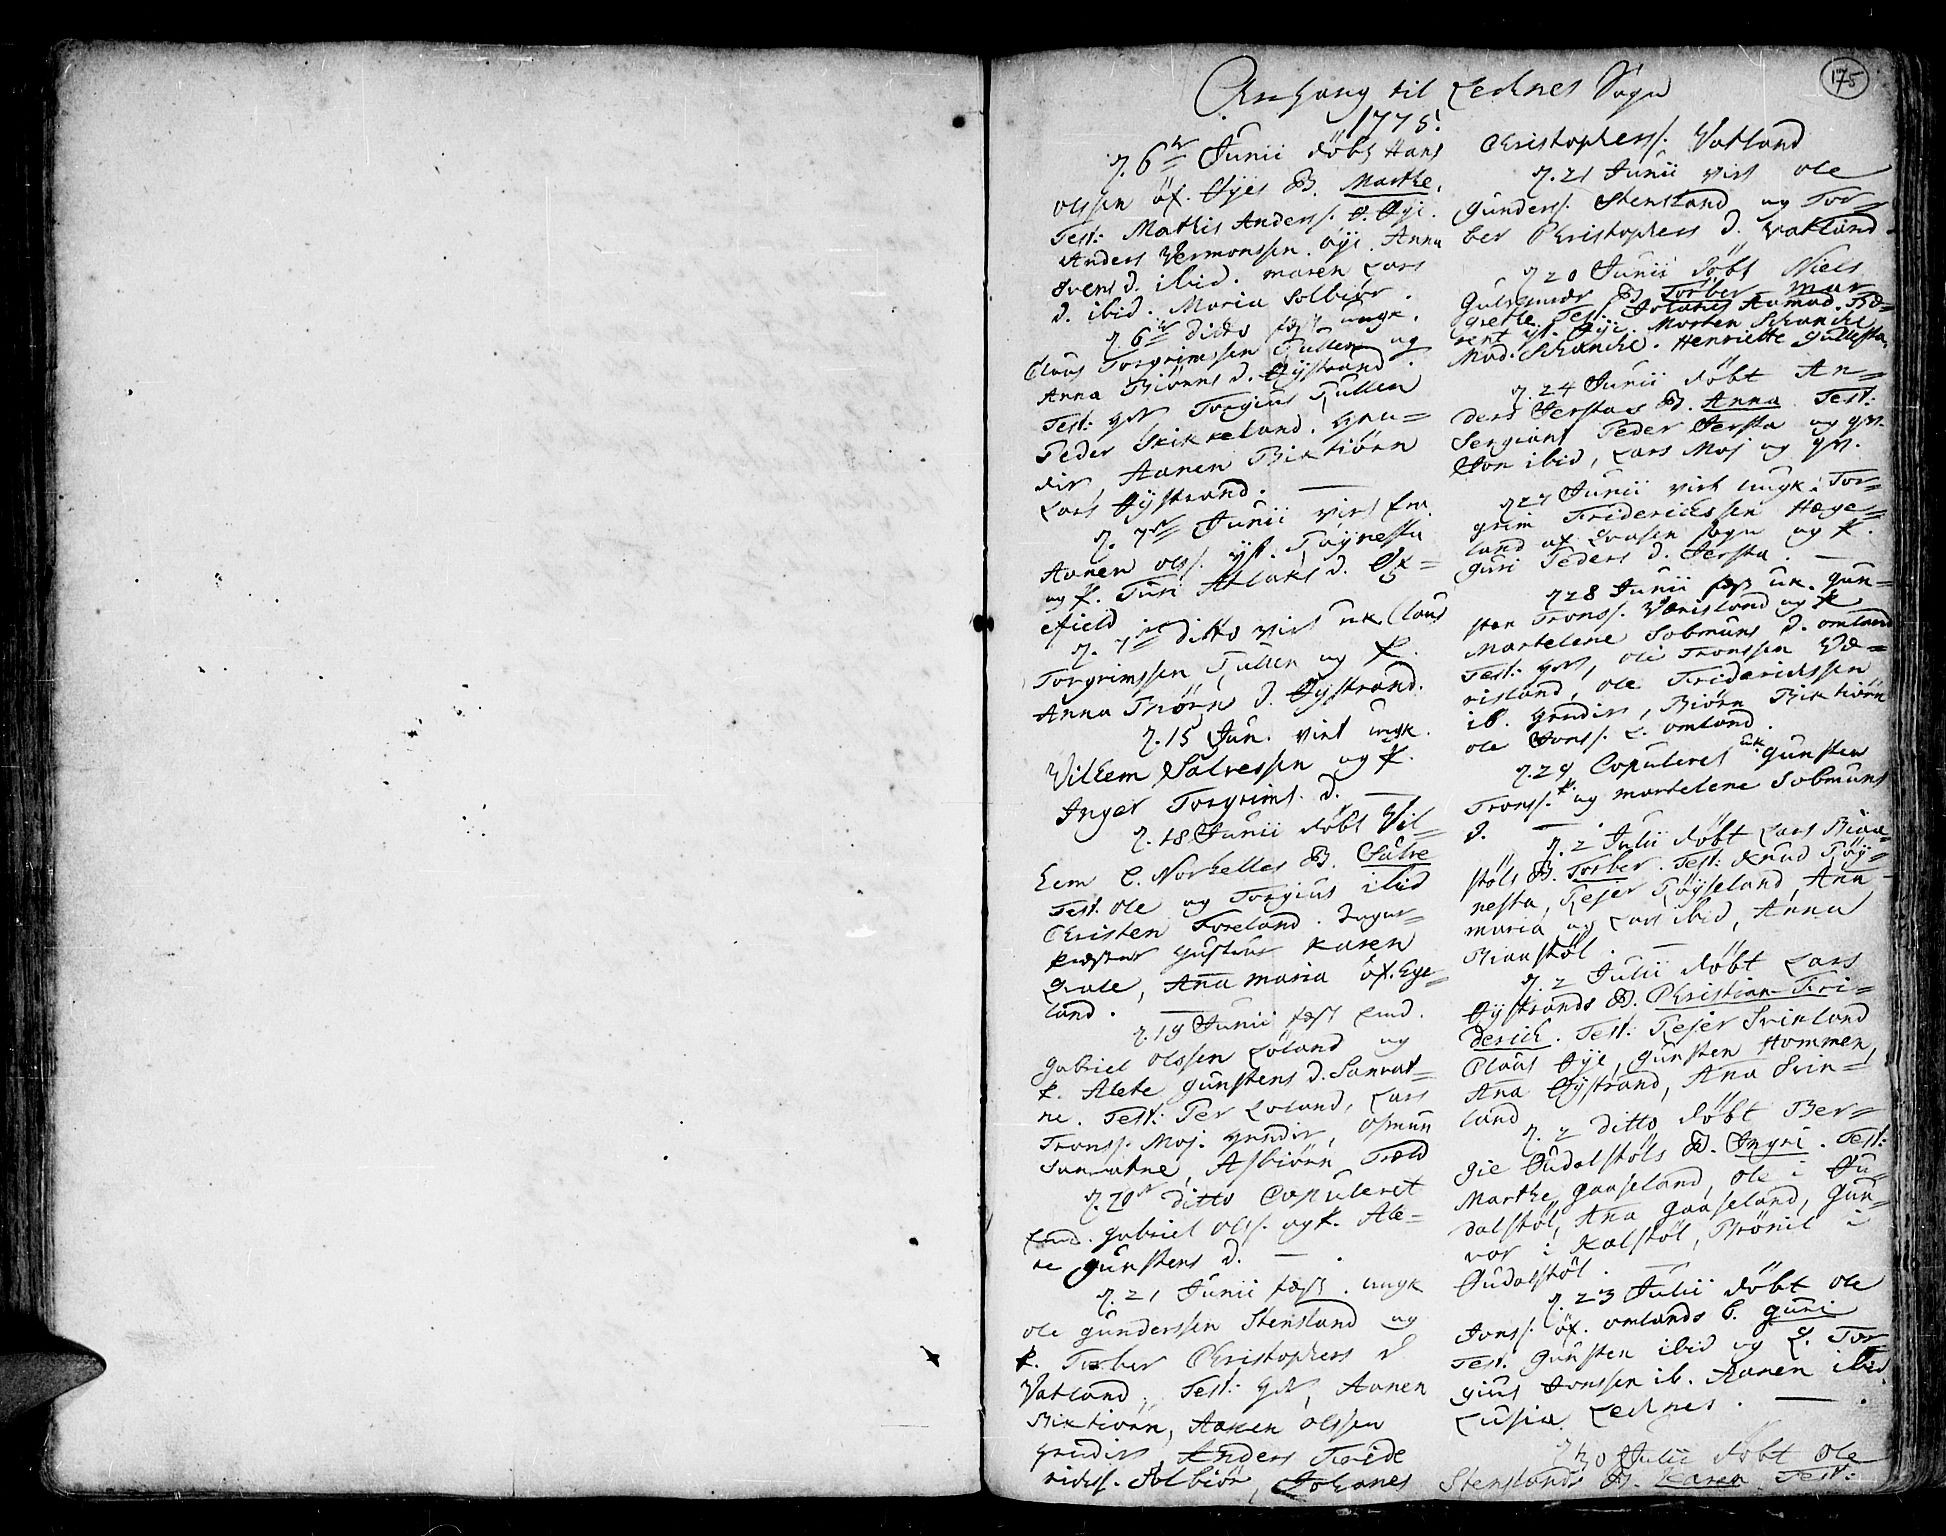 175
Anhang til Lechnes Sogn
1775.
d. 6te Junii döbt Hans
Olssen öf. Öyes B. Marthe.
Test: Mathis Anderss. Ö. Öye.
Anders Vermonssen. öye. Anna
Svens d. ibid. maren Lars
d. ibid. Maria Solbiör.
d. 6te ditto fæst ungk.
Claus Torgrimssen Tullen og
Anna Biörns d. Öystrand.
Test: Torgius Tullen
Peder Skikkeland. Gru=
dir, Aanen Birkiörn
Lars Öystrand.
d. 7de Junii viet
Aanen Olss. yst. Röynesta
og p. Turi Atlaks d. Öx=
efield
d. 7de ditto viet uk. Claus
Torgrimssen Tullen og p.
Anna Biörn d. Öystrand.
d. 15 Jun. viet ungk.
Vilhem Salvessen og p.
Inger Torgrims. d.
d. 18 Junii döbt Vil=
hem C. Norhelles B. Salve
Test. Ole og Torgius ibid
Christen Foreland.
Gustens Karen
Qvale, Ana maria öf. Ege=
land.
d. 19 Junii fæst Enk.
Gabriel Olssen Loland og
p. Alete Gunstens d. Sanvat=
ne. Test: Per Loland, Lars
Tronss. Moj. Grudir, Osmun
Sanvatne, Asbiörn Træld
d. 20de ditto Copuleret
Enk. Gabriel Olss. og p. Ale=
te Gunstens d.
d. 21 Junii fæst. ungk
Ole Gunderssen Stensland og
p. Torber Christophers d
Vatland. Test: Aanen
Birkiörn, Aanen Olssen
Grudir, Anders Fride
richss. Solbiör, Johanes
Christopherss. Vatland
d. 21 Junii viet Ole
Gunderss. Stensland og Tor=
ber Christophers d. Vatland.
d. 20 Junii döbt Niels
B. Torber Mar
grethe. Test. Johanes Aamod. Be=
rent yt. Öye. Morten Schancke,
Mad. Schancke. Henriette Gullesta.
d. 24 Junii döbt An=
ders Jerstads B. Anna. Test:
Sergiant Peder Jersta og
Jon ibid, Lars Moj og
d 27 Junii viet ungk. Tor=
grim Friderichssen Hæge=
land af Evasen sogn og p.
Guri Peders d. Jersta.
d 28 Junii fæst uk. Gun=
sten Tronss. Værisland og p
Martelene Sobmuns d. omland
Test: Ole Tronssen Væ=
risland, Ole Friderichssen
ib. Grudirs, Biörn Birkiörn
Ole Jonss. L. omland.
d. 29 Copuleret uk. Gunsten
Tronss. og p. martelene Sobmuns
d.
d. 2 Julii döbt Lars Biaa=
stöls B. Torber. Test: Knud Röy=
nesta, Rejer Röyseland, Ana
maria og Lars ibid, Anna
Biaastöl.
d. 2 Julii döbt Lars
Öystrands B. Christian Fri=
derich. Test: Rejer Svinland
Claus Öye, Gunsten Hommen,
Ana Öystrand, Ana Svin=
land
d. 2 ditto döbt Ber=
gie Gudalstöls B. Ingri. Test:
Marthe Gaaseland, Ole i Gu=
dalstöl, Ana Gaaseland, Gun=
vor i Kalstöl, Brönil i
Gudalstöl.
d. 23 Julii döbt Ole
Jonss. öf. omlands b. Guri
Test. Gunsten ibid og L. Tor
gius Jonssen ib. Aanen ibid.
Lusia Lechnes.
d 30 Julii döbt Ole
Stenslands B. Karen. Test: